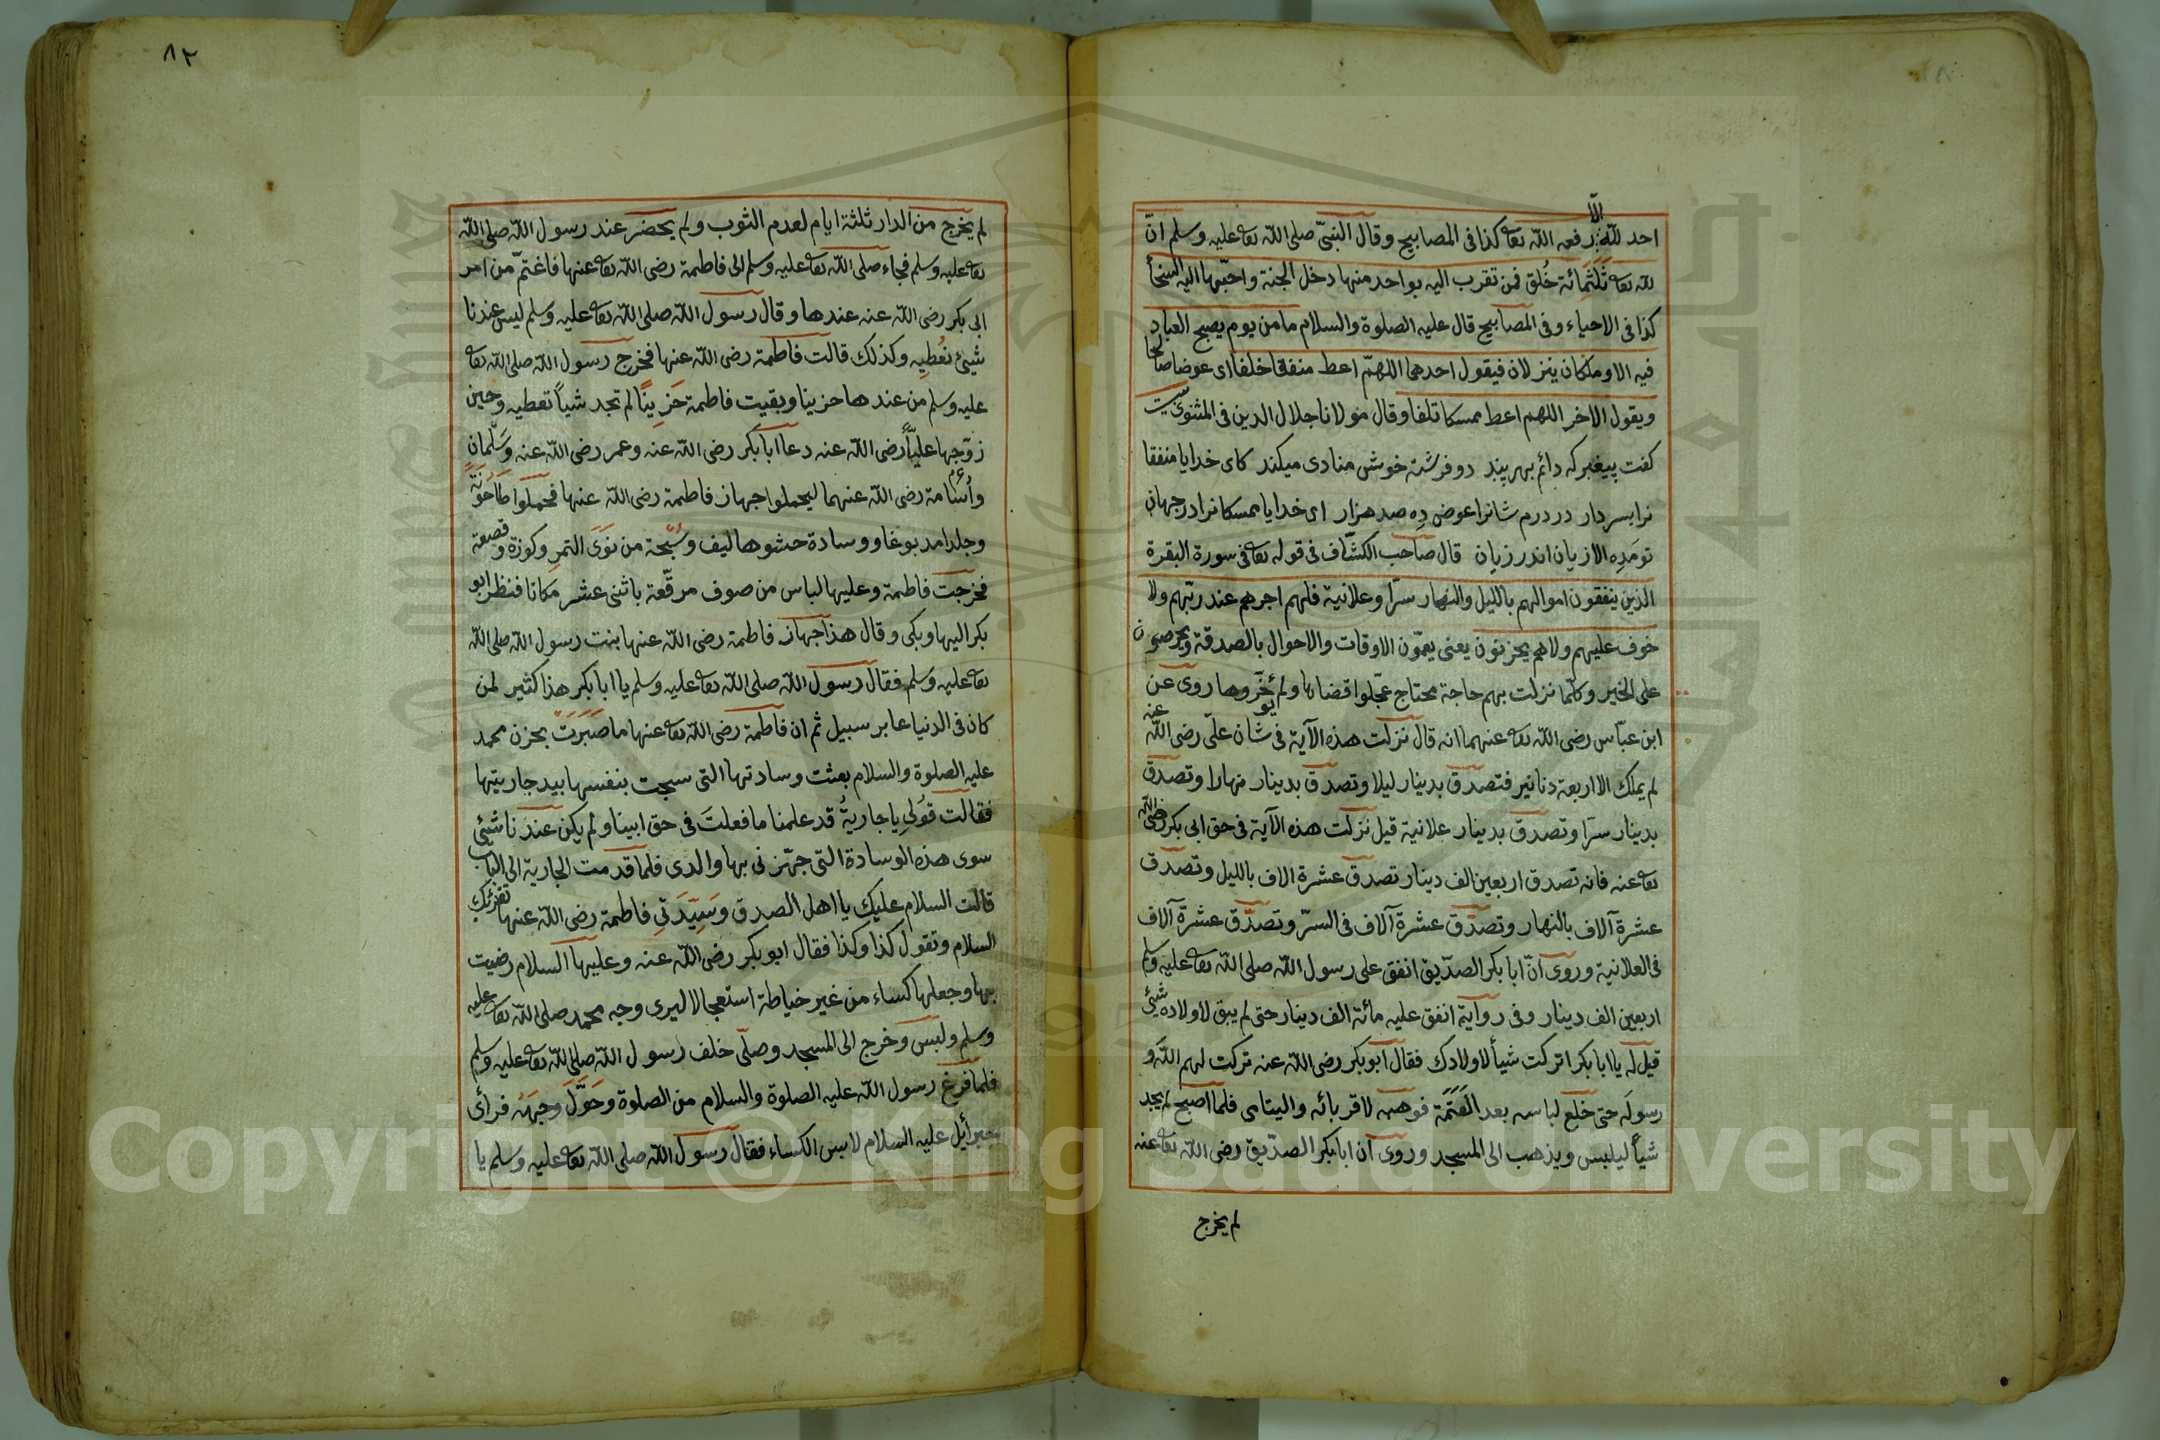 احد لله الّا رفعه الله تعا كذا فى المصابيح وقال النبىّ صلى الله تعا عليه وسلم انّ
لله تعا ثَلَثَمِائة خُلق فمن تقرب اليه بواحد منها دخل الجنة واحبّها اليه السخأ
كذا فى الاحياء وفى المصابيح قال عليه الصلوة والسلام ما من يوم يصبح العباد
فيه الا وملكان ينزلان فيقول احدهما اللهمّ اعط منفقا خلفا اى عوضا صالحا
ويقول الاخر اللهم اعط ممسكا تلفا وقال مولانا جلال الدين فى المثنوى بيت
كفت پيغمبر كه دائم بهر پند دو فرشته خوش منادى ميكند كاى خدايا منفقا
نرا بسر دار در درم شانرا عوض دِه صد هزار اى خدايا ممسكانرا در جهان
تو مَدِه الا زيان اندر زيان قال صاحب الكشّاف فى قوله تعا فى سورة البقرة
الذين ينفقون اموالهم بالليل والنهار سرّا وعلانية فلهم اجرهم عند ربّهم ولا
خوف عليهم ولا هم يحزنون يعنى يعمّون الاوقات والاحوال بالصدقة ويحرصون
على الخير وكلّما نزلت بهم حاجة محتاج عجّلوا قضاءها ولم يؤخّروها روى عن
ابن عبّاس رضى الله تعا عنهما انه قال نزلت هذه الآية فى شان علىّ رضى الله عنه
لم يملك الا اربعة دنانير فتصدق بدينار ليلا وتصدق بدينار نهارا وتصدق
بدينار سرّا وتصدق بدينار علانية قيل نزلت هذه الآية فى حق ابى بكر رضى الله
تعا عنه فانه تصدق اربعين الف دينار تصدق عشرة الاف بالليل وتصدق
عشرة آلاف بالنهار وتصدّق عشرة آلاف فى السرّ وتصدّق عشرة آلاف
فى العلانية وروى انّ ابا بكر الصدّيق انفق على رسول الله صلى الله تعا عليه وسلم
اربعين الف دينار وفى رواية انفق عليه مائة الف دينار حتى لم يبق لاولاده شئ
قيل له يا ابا بكر اتركت شيأ لاولادك فقال ابو بكر رضى الله عنه تركت لهم الله و
رسوله حتى خلع لباسه بعد العَتَمَة فوهبه لاقربائه واليتامى فلما اصبح لم يجد
شيأ ليلبس ويذهب الى المسجد وروى ان ابا بكر الصدّيق رضى الله تعا عنه
لم يخرج
٨٢
لم يخرج من الدار ثلثة ايام لعدم الثوب ولم يحضر عند رسول الله صلى الله
تعا عليه وسلم فجاء صلى الله تعا عليه وسلم الى فاطمة رضى الله تعا عنها فاغتمّ من امر
ابى بكر رضى الله عنه عندها وقال رسول الله صلى الله تعا عليه وسلم ليس عندنا
شيئ نعُطيه وكذلك قالت فاطمة رضى الله عنها فخرج رسول الله صلى الله تعا
عليه وسلم من عندها حزينا وبقيت فاطمة حَزِينًا لم تجد شيأ تعطيه وحين
زوّجها عليّاً رضى الله عنه دعا ابا بكر رضى الله عنه وعمر رضى الله عنه وسَلْمان
واُسامة رضى الله عنهما ليحملوا جهاز فاطمة رضى الله عنها فحملوا طاحُونَةً
وجلدا مدبوغا ووسادة حشوها ليف وسُبْحة من نَوَى التمرِ وكوزة وقصعة
فخرجت فاطمة وعليها لباس من صوف مرقّعة باثنى عشر مكانا فنظر ابو
بكر اليها وبكى وقال هذا جهاز فاطمة رضى الله عنها بنت رسول الله صلى الله
تعا عليه وسلم فقال رسول الله صلى الله تعا عليه وسلم يا ابا بكر هذا كثير لمن
كان فى الدنيا عابر سبيل ثم ان فاطمة رضى الله تعا عنها ما صَبَرَتْ بحزن محمد
عليه الصلوة والسلام بعثت وسادتها التى نسجت بنفسها بيد جاريتها
فقالت قوُلى يا جاريةُ قد علمنا ما فعلتَ فى حق ابينا ولم يكن عندنا شيئ
سوى هذه الوسادة التى جهّزنى بها والدى فلما قدمت الجارية الى الباب
قالت السلام عليك يا اهل الصدق وسَيِّدَتى فاطمة رضى الله عنها تقرئك
السلام وتقول كذا وكذا فقال ابو بكر رضى الله عنه وعليها السلام رضيت
بها وجعلها كساء من غير خياطة استعجالا ليرى وجه محمد صلى الله تعا عليه
وسلم ولبس وخرج الى المسجد وصلّى خلف رسول الله صلى الله تعا عليه وسلم
فلما فرغ رسول الله عليه الصلوة والسلام من الصلوة وحَوَّلَ وجهَهُ فرأى
جبرأيل عليه السلام لابس الكساء فقال رسول الله صلى الله تعا عليه وسلم يا
Copyright © King Saud University